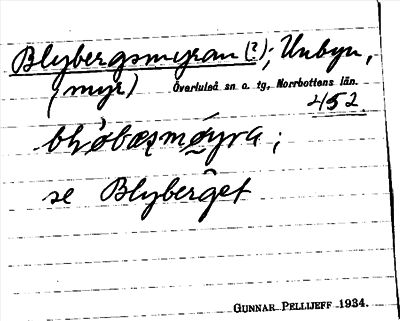 Blybergsmyran (?); Unbyn,
(myr) Överluleå sn o. tg, Norrbottens län.
452.
se Blyberget
GUNNAR PELLIJEFF 1934.